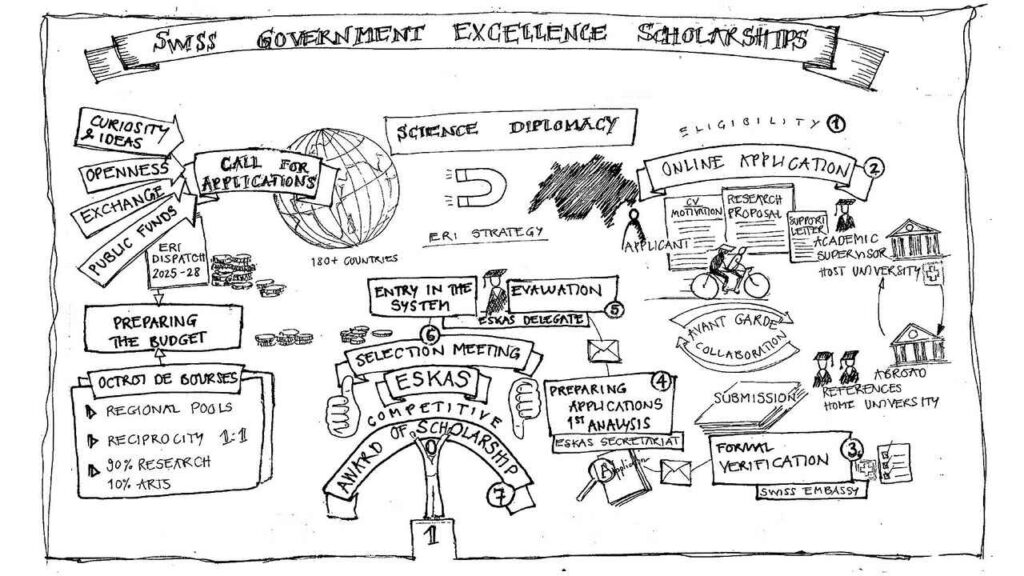 SWISS GOVERNMENT EXCELLENCE SCHOLARSHIPS
CURIOSITY
& IDEAS
OPENNESS
EXCHANGE
PUBLIC FUNDS
CALL FOR
APPLICATIONS
180+ COUNTRIES
SCIENCE DIPLOMACY
ERI STRATEGY
ERI
DISPATCH
2025-28
PREPARING
THE BUDGET
OCTROI DE BOURSES
REGIONAL POOLS
RECIPROCITY 1:1
90% RESEARCH
10% ARTS
ELIGIBILITY 1
ONLINE APPLICATION 2
APPLICANT
CV
MOTIVATION
RESEARCH
PROPOSAL
SUPPORT
LETTER
ACADEMIC
SUPERVISOR
HOST UNIVERSITY
AVANT GARDE
COLLABORATION
ABROAD
REFERENCES
HOME UNIVERSITY
SUBMISSION
FORMAL
VERIFICATION
3.
SWISS EMBASSY
4
PREPARING
APPLICATIONS
1ST ANALYSIS
ESKAS SECRETARIAT
Application
EVALUATION
5
ESKAS DELEGATE
ENTRY IN THE
SYSTEM
6
SELECTION MEETING
ESKAS
COMPETITIVE
AWARD OF SCHOLARSHIP
7
1